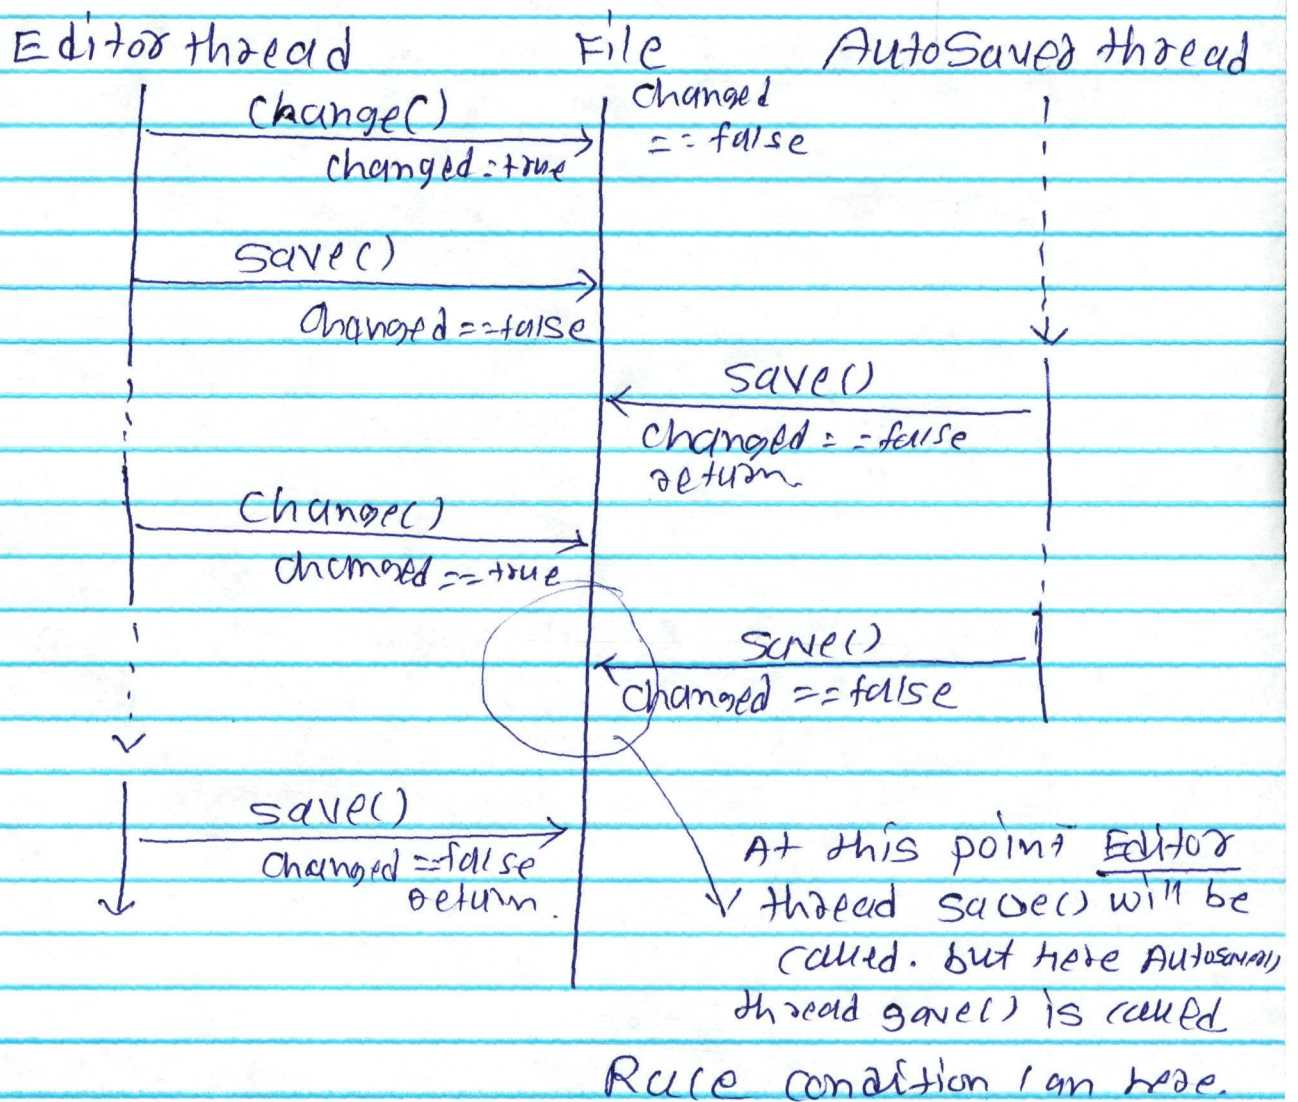 Editor thread File AutoSaver thread
change() changed
== false
changed = true
save()
changed == false
save()
changed == false
return.
change()
changed == true
save()
changed == false
save()
changed == false
return.
At this point Editor
thread save() will be
called. but here Autosaver
thread save() is called
Race condition can here.